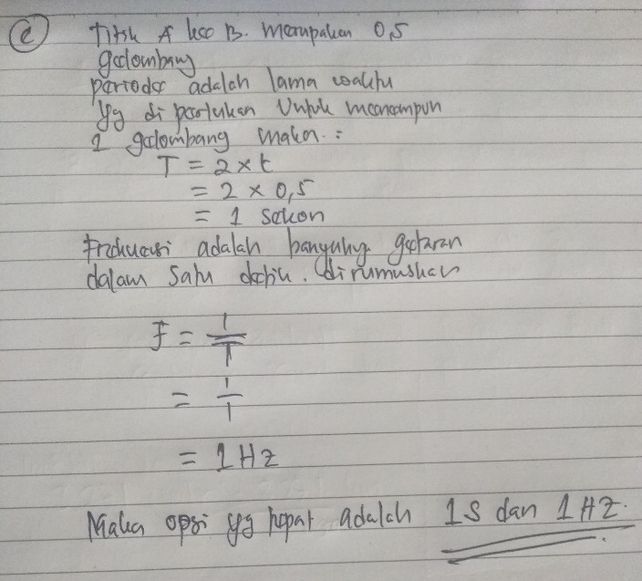 C
Titik A ke B. merupakan 0,5
gelombang
periode adalah lama waktu
Yg di perlukan Untuk menempuh
1 gelombang maka :
T = 2 x t
= 2 x 0,5
= 1 sekon
Frekuensi adalah banyaknya getaran
dalam satu detik. dirumuskan
F = 1/T
= 1/1
= 1 Hz
Maka opsi yg tepat adalah 1 S dan 1 HZ.